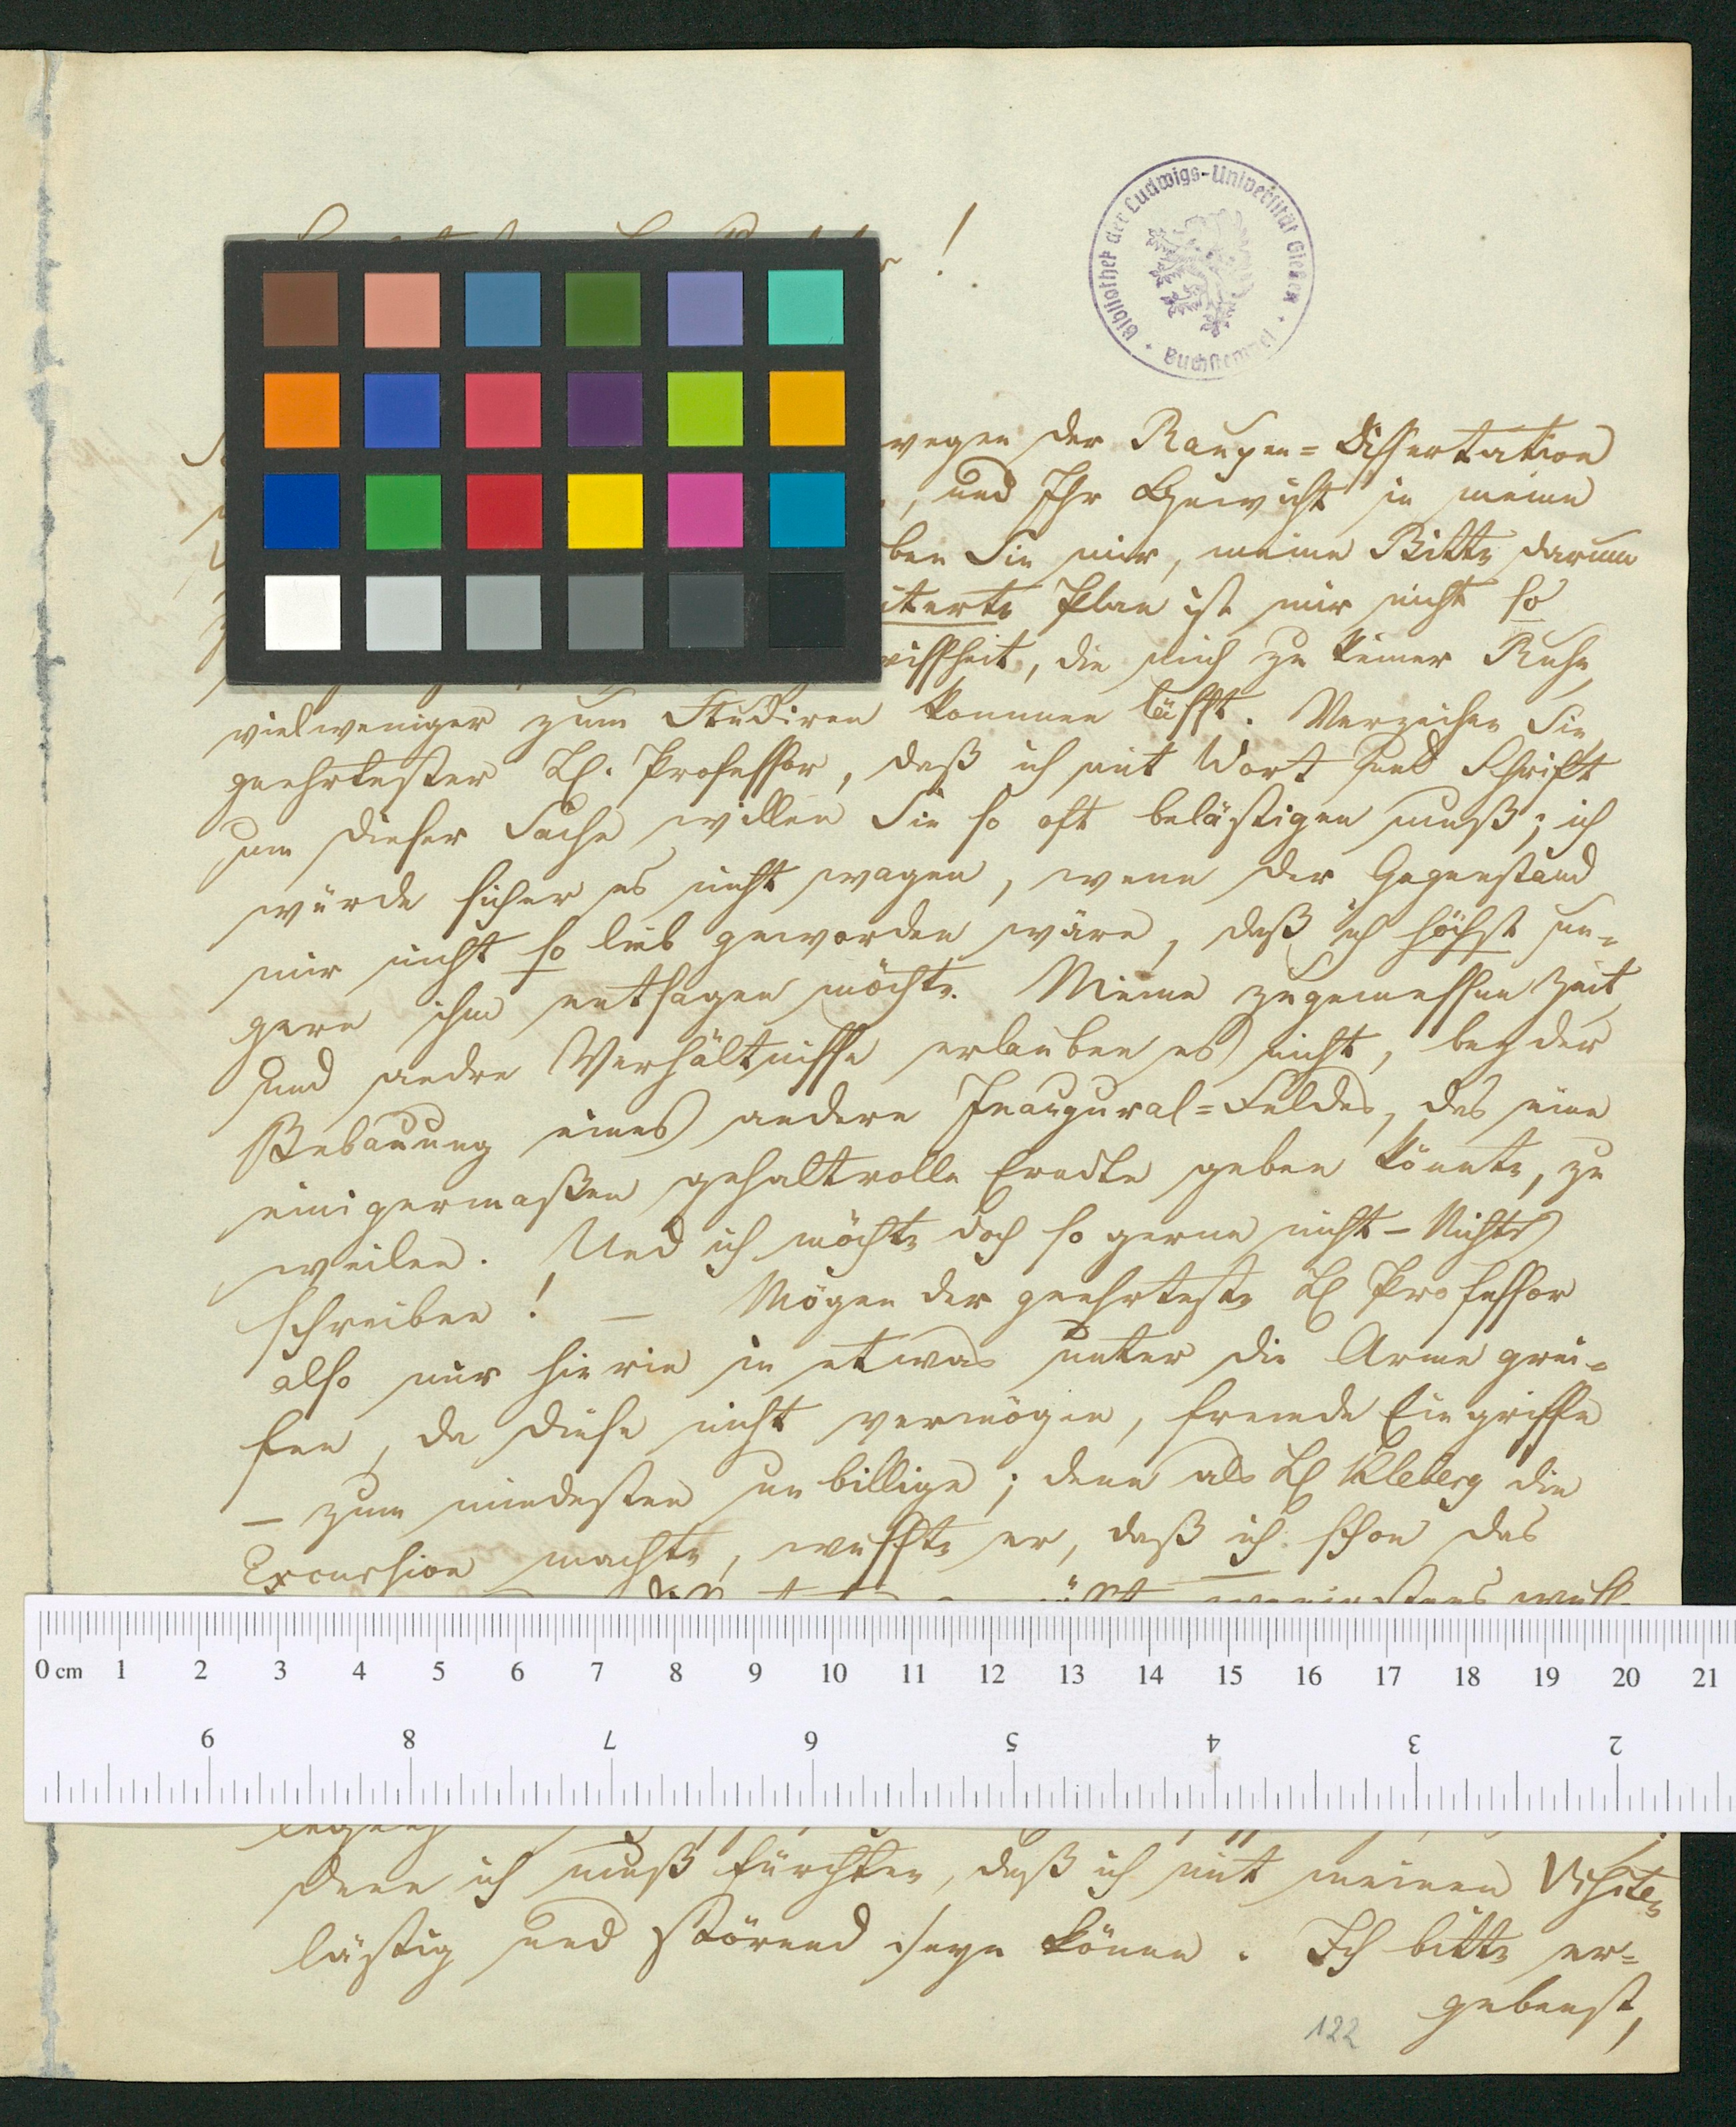 !
Bibliothek der Ludwigs-Universität Gießen · Buchstempel ·
wegen der Raupen=Dissertation
, und Ihr Gewicht in meine
ben Sie mir, meine Bitte darum
iterte Plan ist mir nicht so
wissheit, die mich zu keiner Ruhe,
vielweniger zum Studiren kommen läfst. Verzeihen Sie,
geehrtester H. Professor, daß ich mit Wort und Schrift
um dieser Sache willen Sie so oft belästigen muß; ich
würde sicher es nicht wagen, wenn der Gegenstand
mir nicht so lieb geworden wäre, daß ich höchst un=
gern ihm entsagen möchte. Meine zugemessene Zeit
und andre Verhältnisse erlauben es nicht, bey der
Bebauung eines andern Inaugural=Feldes, das eine
einigermaßen gehaltvolle Erndte geben könnte, zu
weilen. Und ich möchte doch so gerne nicht – Nichts
schreiben! — Mögen der geehrteste H Professor
also mir hierin in etwas unter die Arme grei=
fen, da diese nicht vermögen, fremde Eingriffe
— zum mindesten unbillige; denn als H Kleberg die
Excursion machte, wuffte er, daß ich schon das
wenigstens
0 cm 1 2 3 4 5 6 7 8 9 10 11 12 13 14 15 16 17 18 19 20 21
9 8 7 6 5 4 3 2
denn ich muß fürchten, daß ich mit meinen Visiten
lästig und störend seyn könne. Ich bitte er=
gebenst,
122